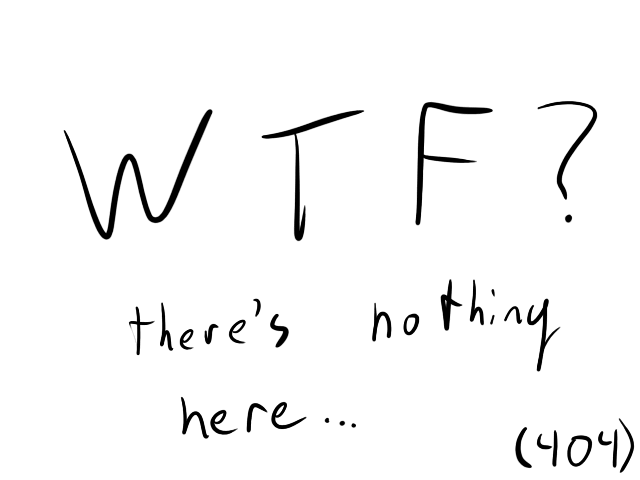 WTF?
there's nothing
here...
(404)